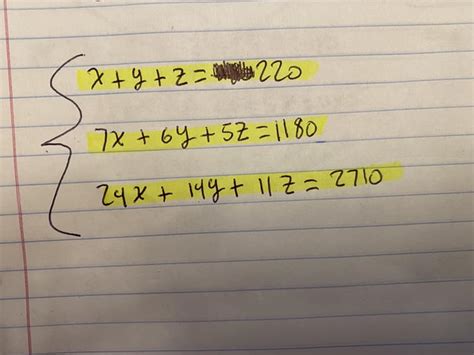 x + y + z = 220
7x + 6y + 5z = 1180
24x + 14y + 11z = 2710